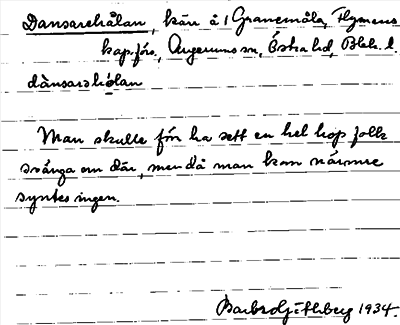 Dansarehålan, kärr å 1 Granemåla, Flymens
kap.förs., Augerums sn, Östra hd, Blek. l.
dànsarehólan
Man skulle förr ha sett en hel hop folk
svänga om där, men då man kom närmre
syntes ingen.
1934.